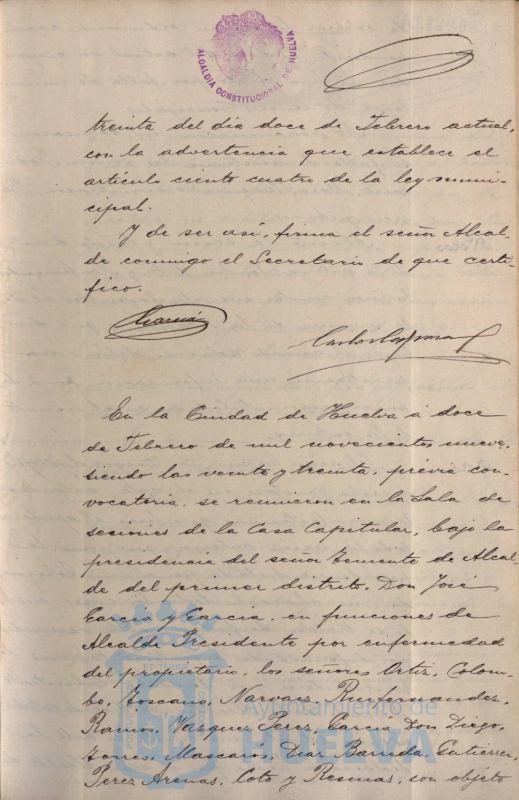 ALCALDIA CONSTITUCIONAL DE HUELVA
treinta del dia doce de Febrero actual,
con la advertencia que establece el
artículo ciento cuatro de la ley muni-
cipal.
Y de ser así, firma el señor Alcal-
de conmigo el Secretario de que certi-
fico.
García
En la Ciudad de Huelva á doce
de Febrero de mil novecientos nueve,
siendo las veinte y treinta, prévia con-
vocatoria, se reunieron en la Sala de
sesiones de la Casa Capitular, bajo la
presidencia del señor Teniente de Alcal-
de del primer distrito, Don José
García y García, en funciones de
Alcalde Presidente por enfermedad
del propietario, los señores Ortiz, Colom-
bo, Toscano, Narvaez,
Ramos, Vázquez Perez, García Don Diego,
Torres, Mascarós, Diaz Barreda, Gutierrez,
Perez Arenas, Coto y Resinas, con objeto
Ayuntamiento de
HUELVA